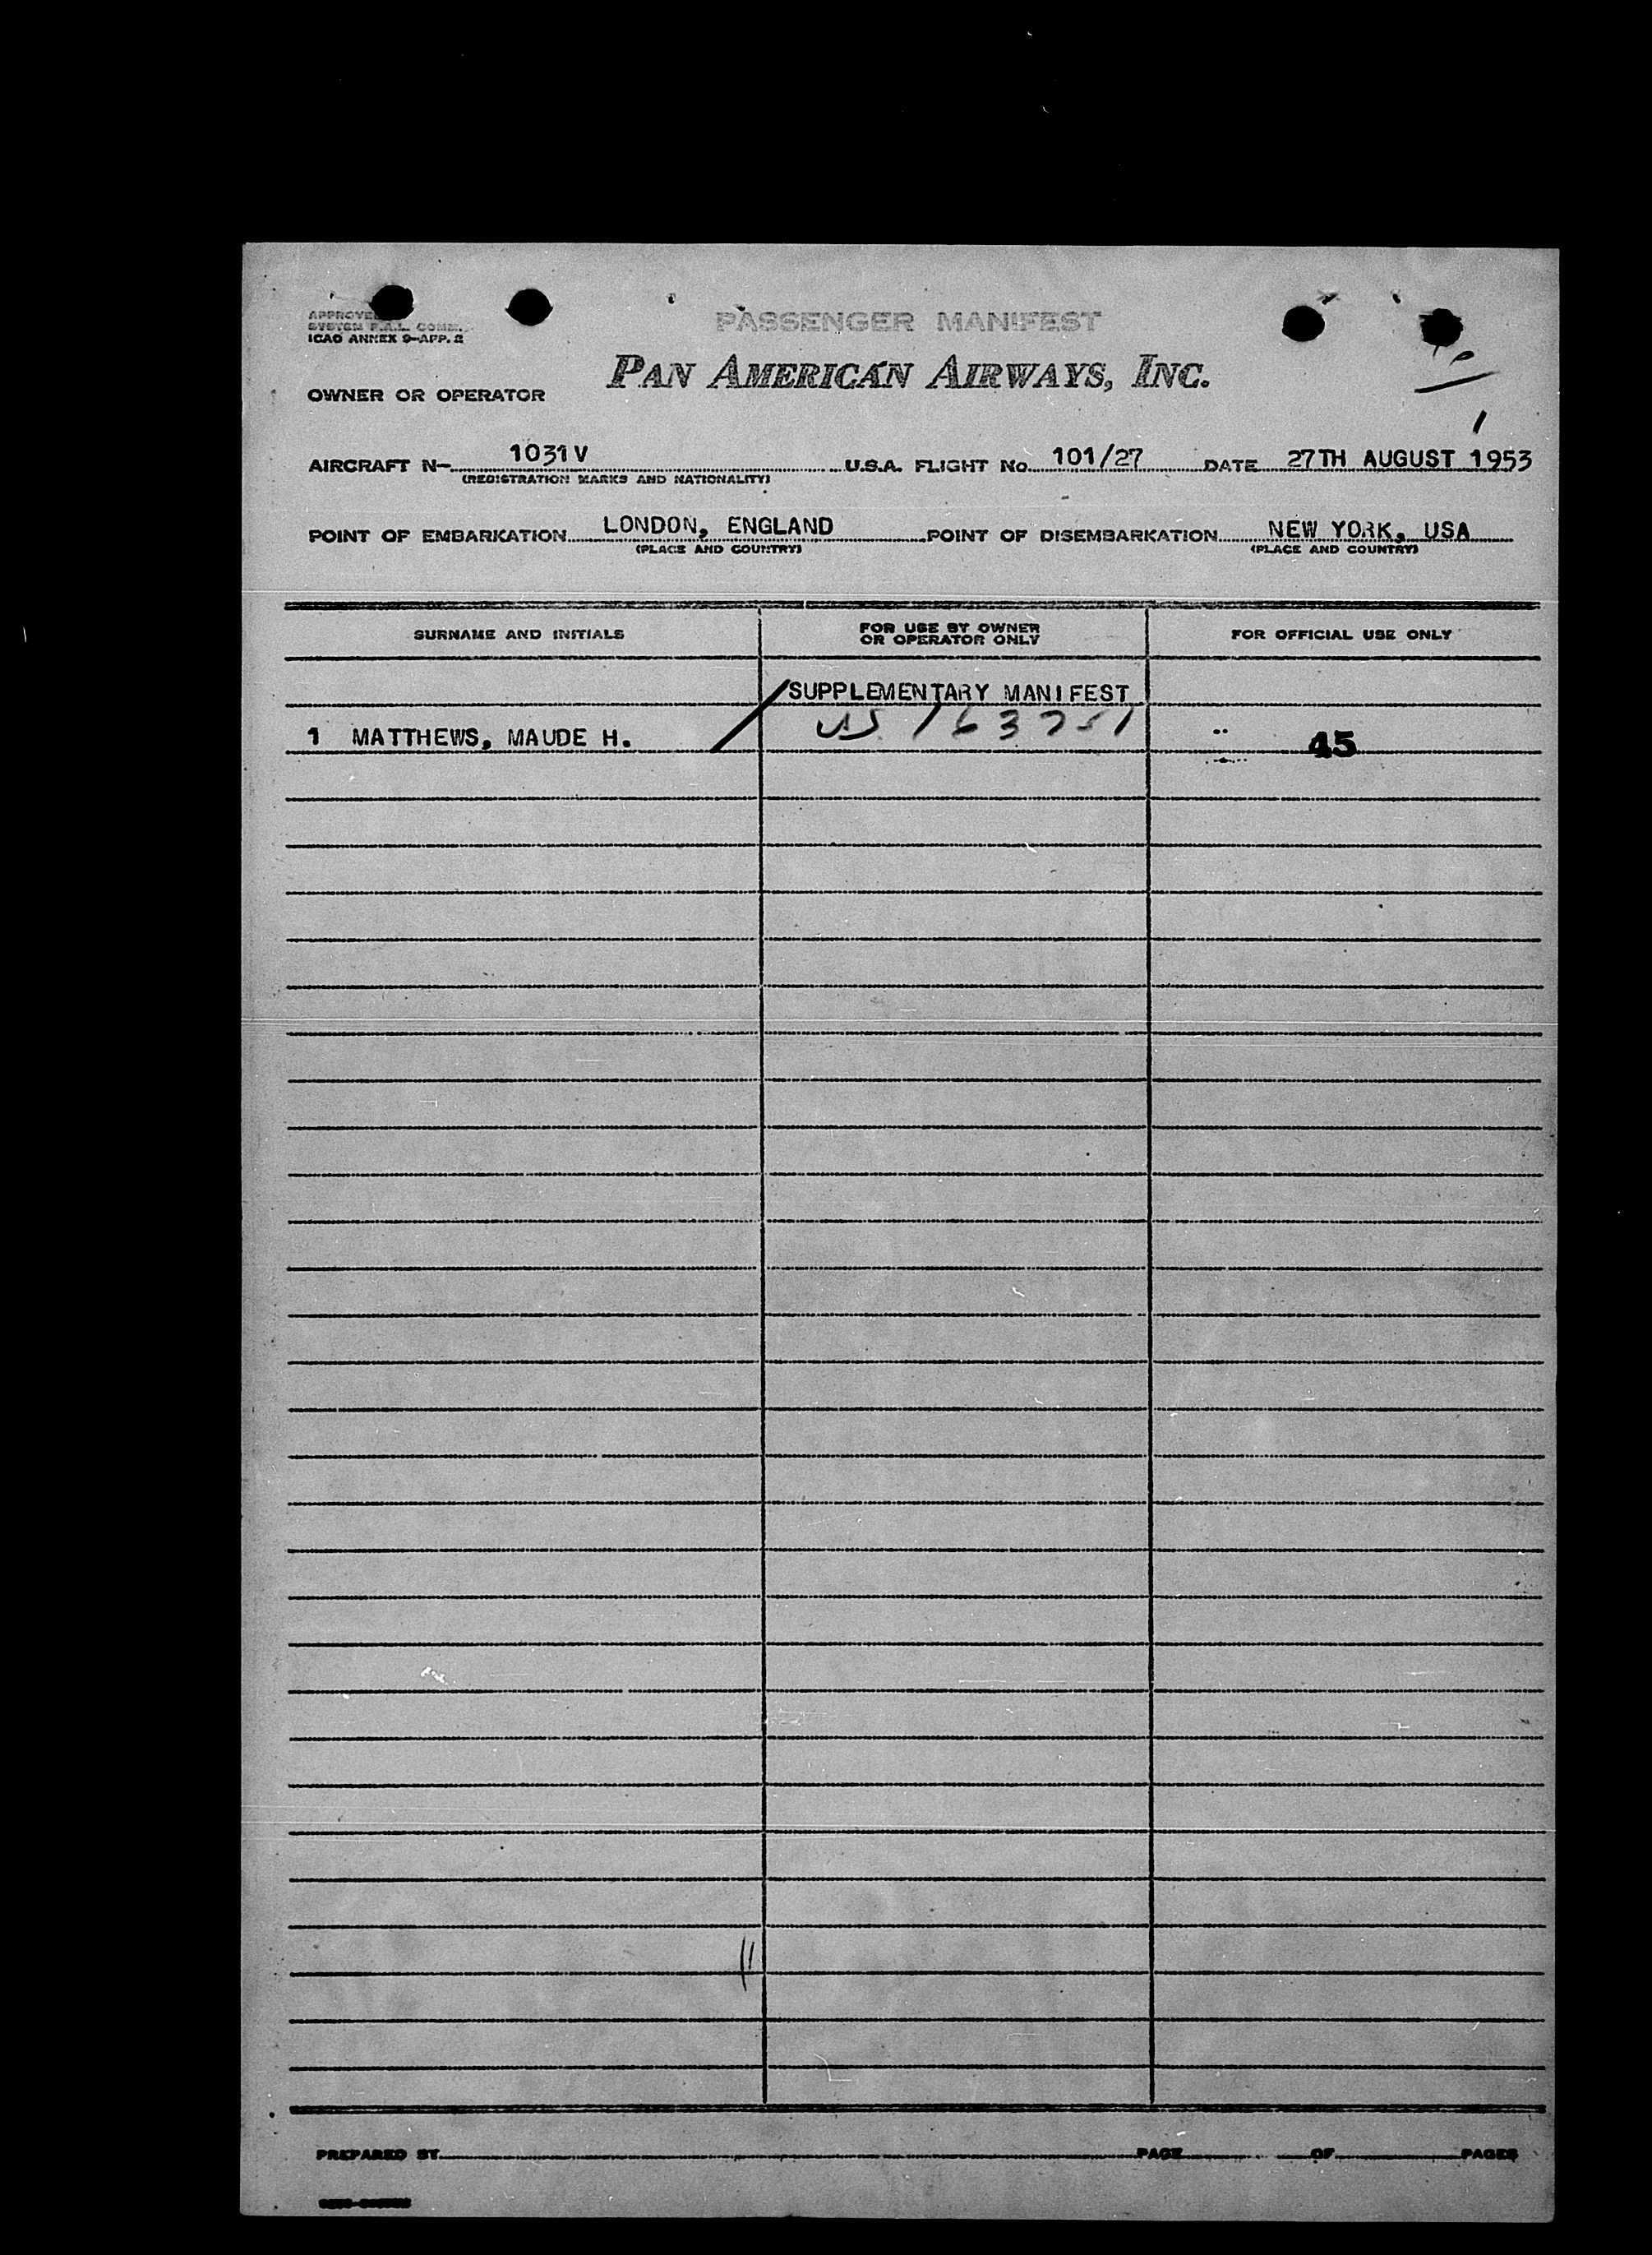 APPROVED
SYSTEM F.A.L. COMM.
ICAO ANNEX 9-APP. 2
PASSENGER MANIFEST
PAN AMERICAN AIRWAYS, INC.
OWNER OR OPERATOR
AIRCRAFT N- 1031V U.S.A. FLIGHT No. 101/27 DATE 27TH AUGUST 1953
(REGISTRATION MARKS AND NATIONALITY)
POINT OF EMBARKATION LONDON, ENGLAND POINT OF DISEMBARKATION NEW YORK, USA
(PLACE AND COUNTRY) (PLACE AND COUNTRY)
SURNAME AND INITIALS FOR USE BY OWNER OR OPERATOR ONLY FOR OFFICIAL USE ONLY
SUPPLEMENTARY MANIFEST
1 MATTHEWS, MAUDE H. US 163751 45
PREPARED BY PAGE OF PAGES